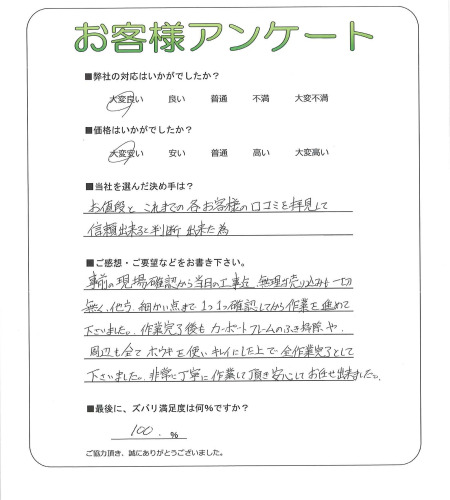 お客様アンケート
■弊社の対応はいかがでしたか？
大変良い 良い 普通 不満 大変不満
■価格はいかがでしたか？
大変安い 安い 普通 高い 大変高い
■当社を選んだ決め手は？
お値段と これまでの各お客様の口コミを拝見して
信頼出来ると判断出来た為
■ご感想・ご要望などをお書き下さい。
事前の現場確認から当日の工事迄、無理な売り込みも一切
無く、細かい点まで1つ1つ確認してから作業を進めて
下さいました。作業完了後もカーポートフレームのふき掃除や、
周辺も全てホウキを使いキレイにした上で全作業完了として
下さいました。非常に丁寧に作業して頂き安心してお任せ出来ました。
■最後に、ズバリ満足度は何％ですか？
100. %
ご協力頂き、誠にありがとうございました。